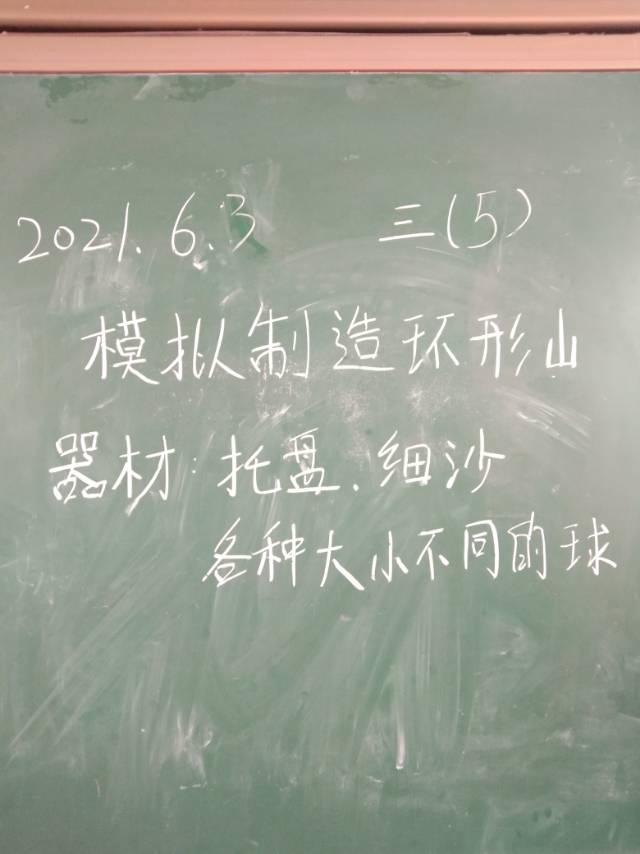 2021.6.3 三(5)
模拟制造环形山
器材:托盘、细沙
各种大小不同的球